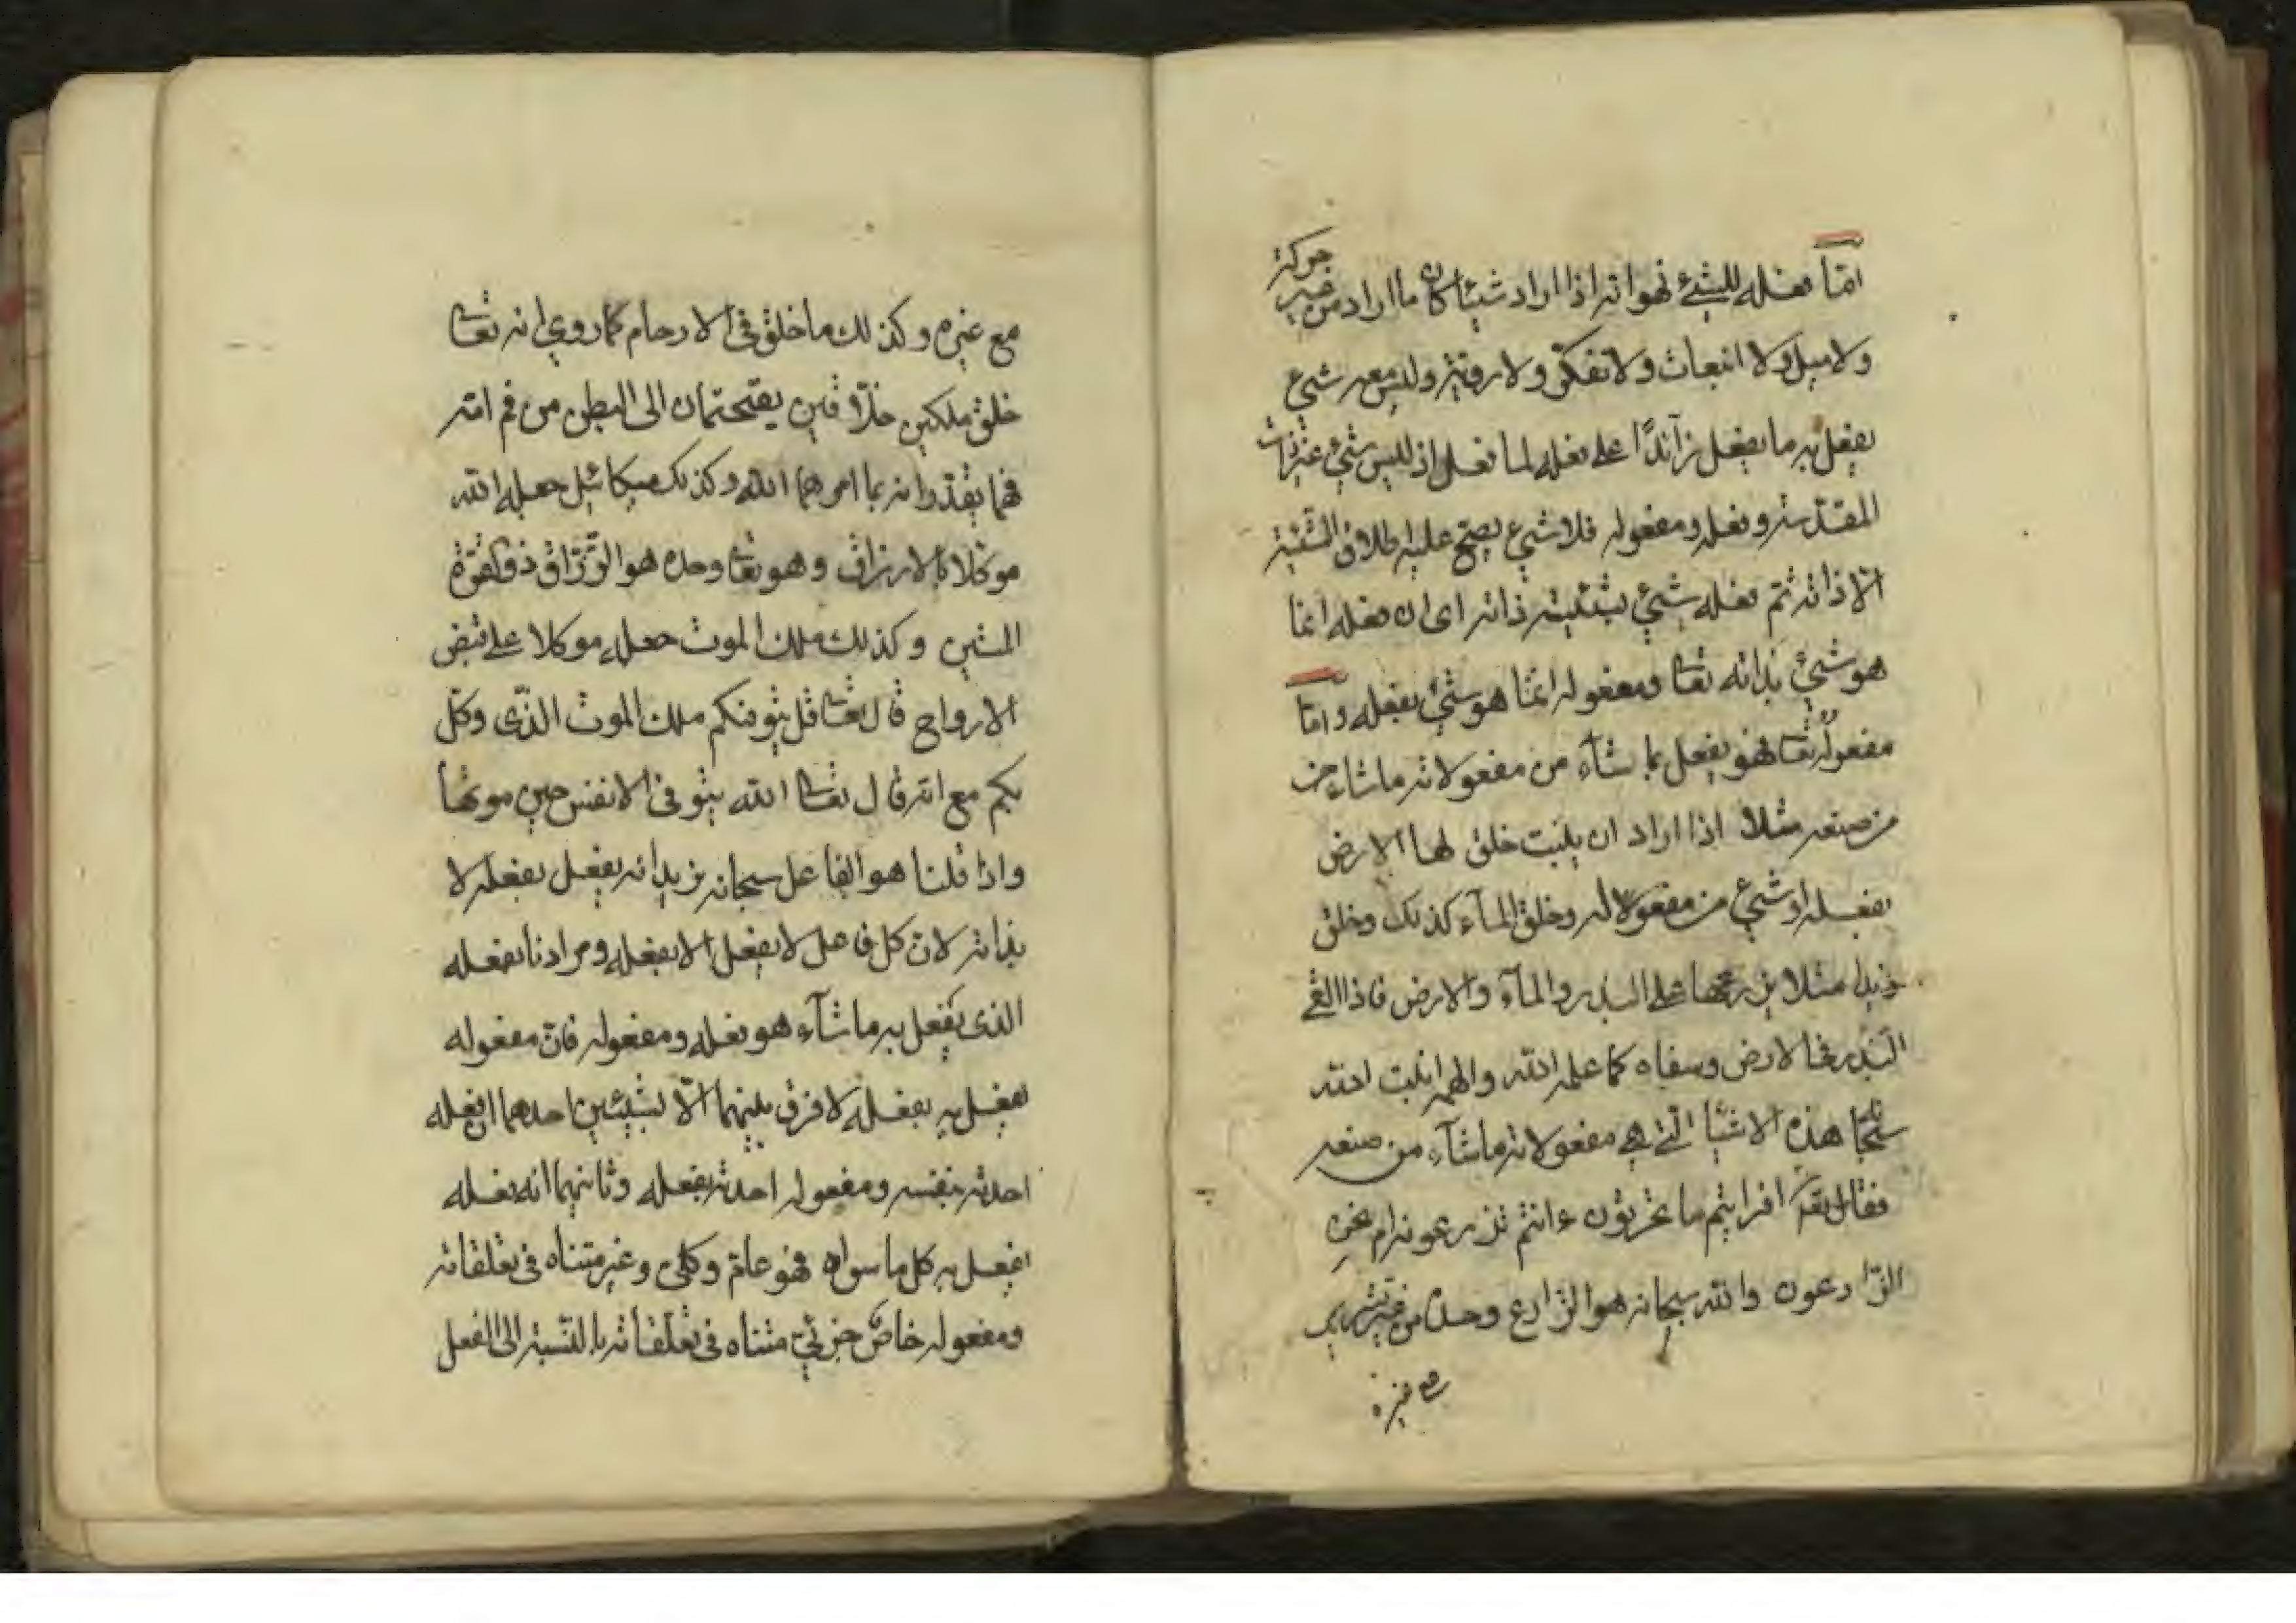 امّا فعله للشئ فهو انه اذا اراد شيئا كان ما اراد من غير حركة
ولا ميل ولا انبعاث ولا تفكّر ولا رويّة وليس معه شئ
يفعل به ما يفعل زآئدًا على فعله لما فعل اذ ليس شئ غير ذاته
المقدّسة وفعله ومفعوله فلا شئ يصحّ عليه اطلاق الشيئية
الّا ذاته ثمّ فعله شئ بشيئية ذاته اى ان فعله انما
هو شئ بذاته تعا ومفعوله انمّا هو شئ بفعله وامّا
مفعوله تعا فهو يفعل بما شآء من مفعولاته ما شاء من
من صنعه مثلا اذا اراد ان ينبت خلق لها الارض
بفعله او شئ من مفعولاته وخلق المآء كذلك وخلق
زيدا مثلا يزرعها على البذر والمآء والارض فاذا القى
البذر فى الارض وسقاه كما علمه الله والهمه انبت الله
سبحا بهذه الاشيآ التى هى مفعولاته ما شآء من صنعه
فقال تعا افرايتم ما تحرثون ءانتم تزرعونه ام نحن
الزّارعون والله سبحانه هو الزّارع وحده من غير تشريك
مع غيره
مع غيره وكذلك ما خلق فى الارحام كما روى انه تعا
خلق ملكين خلّاقين يقتحمان الى البطن من فم امّه
فهما يقدّرانه بما امرهما الله وكذلك ميكائيل جعله الله
موكّلا بالارزاق وهو تعا وحده هو الرّزّاق ذو القوّة
المتين وكذلك ملك الموت جعله موكلا على قبض
الارواح قال تعا قل يتوفيكم ملك الموت الذّى وكّل
بكم مع انه قال تعا الله يتوفى الانفس حين موتها
واذا قلنا هو الفاعل سبحانه نريد انه يفعل بفعله لا
بذاته لان كل فاعل لا يفعل الا بفعله ومرادنا بفعله
الذى يفعل به ما شآء هو فعله ومفعوله فان مفعوله
يفعل به بفعله لا فرق بينهما الّا بشيئين احدهما ان فعله
احدثه بنفسه ومفعوله احدثه بفعله وثانيهما انه بفعله
يفعل به كل ما سواه فهو عامّ وكلى وغير متناه فى تعلقاته
ومفعوله خاصّ جزئىّ متناه فى تعلّقاته بالنّسبة الى الفعل